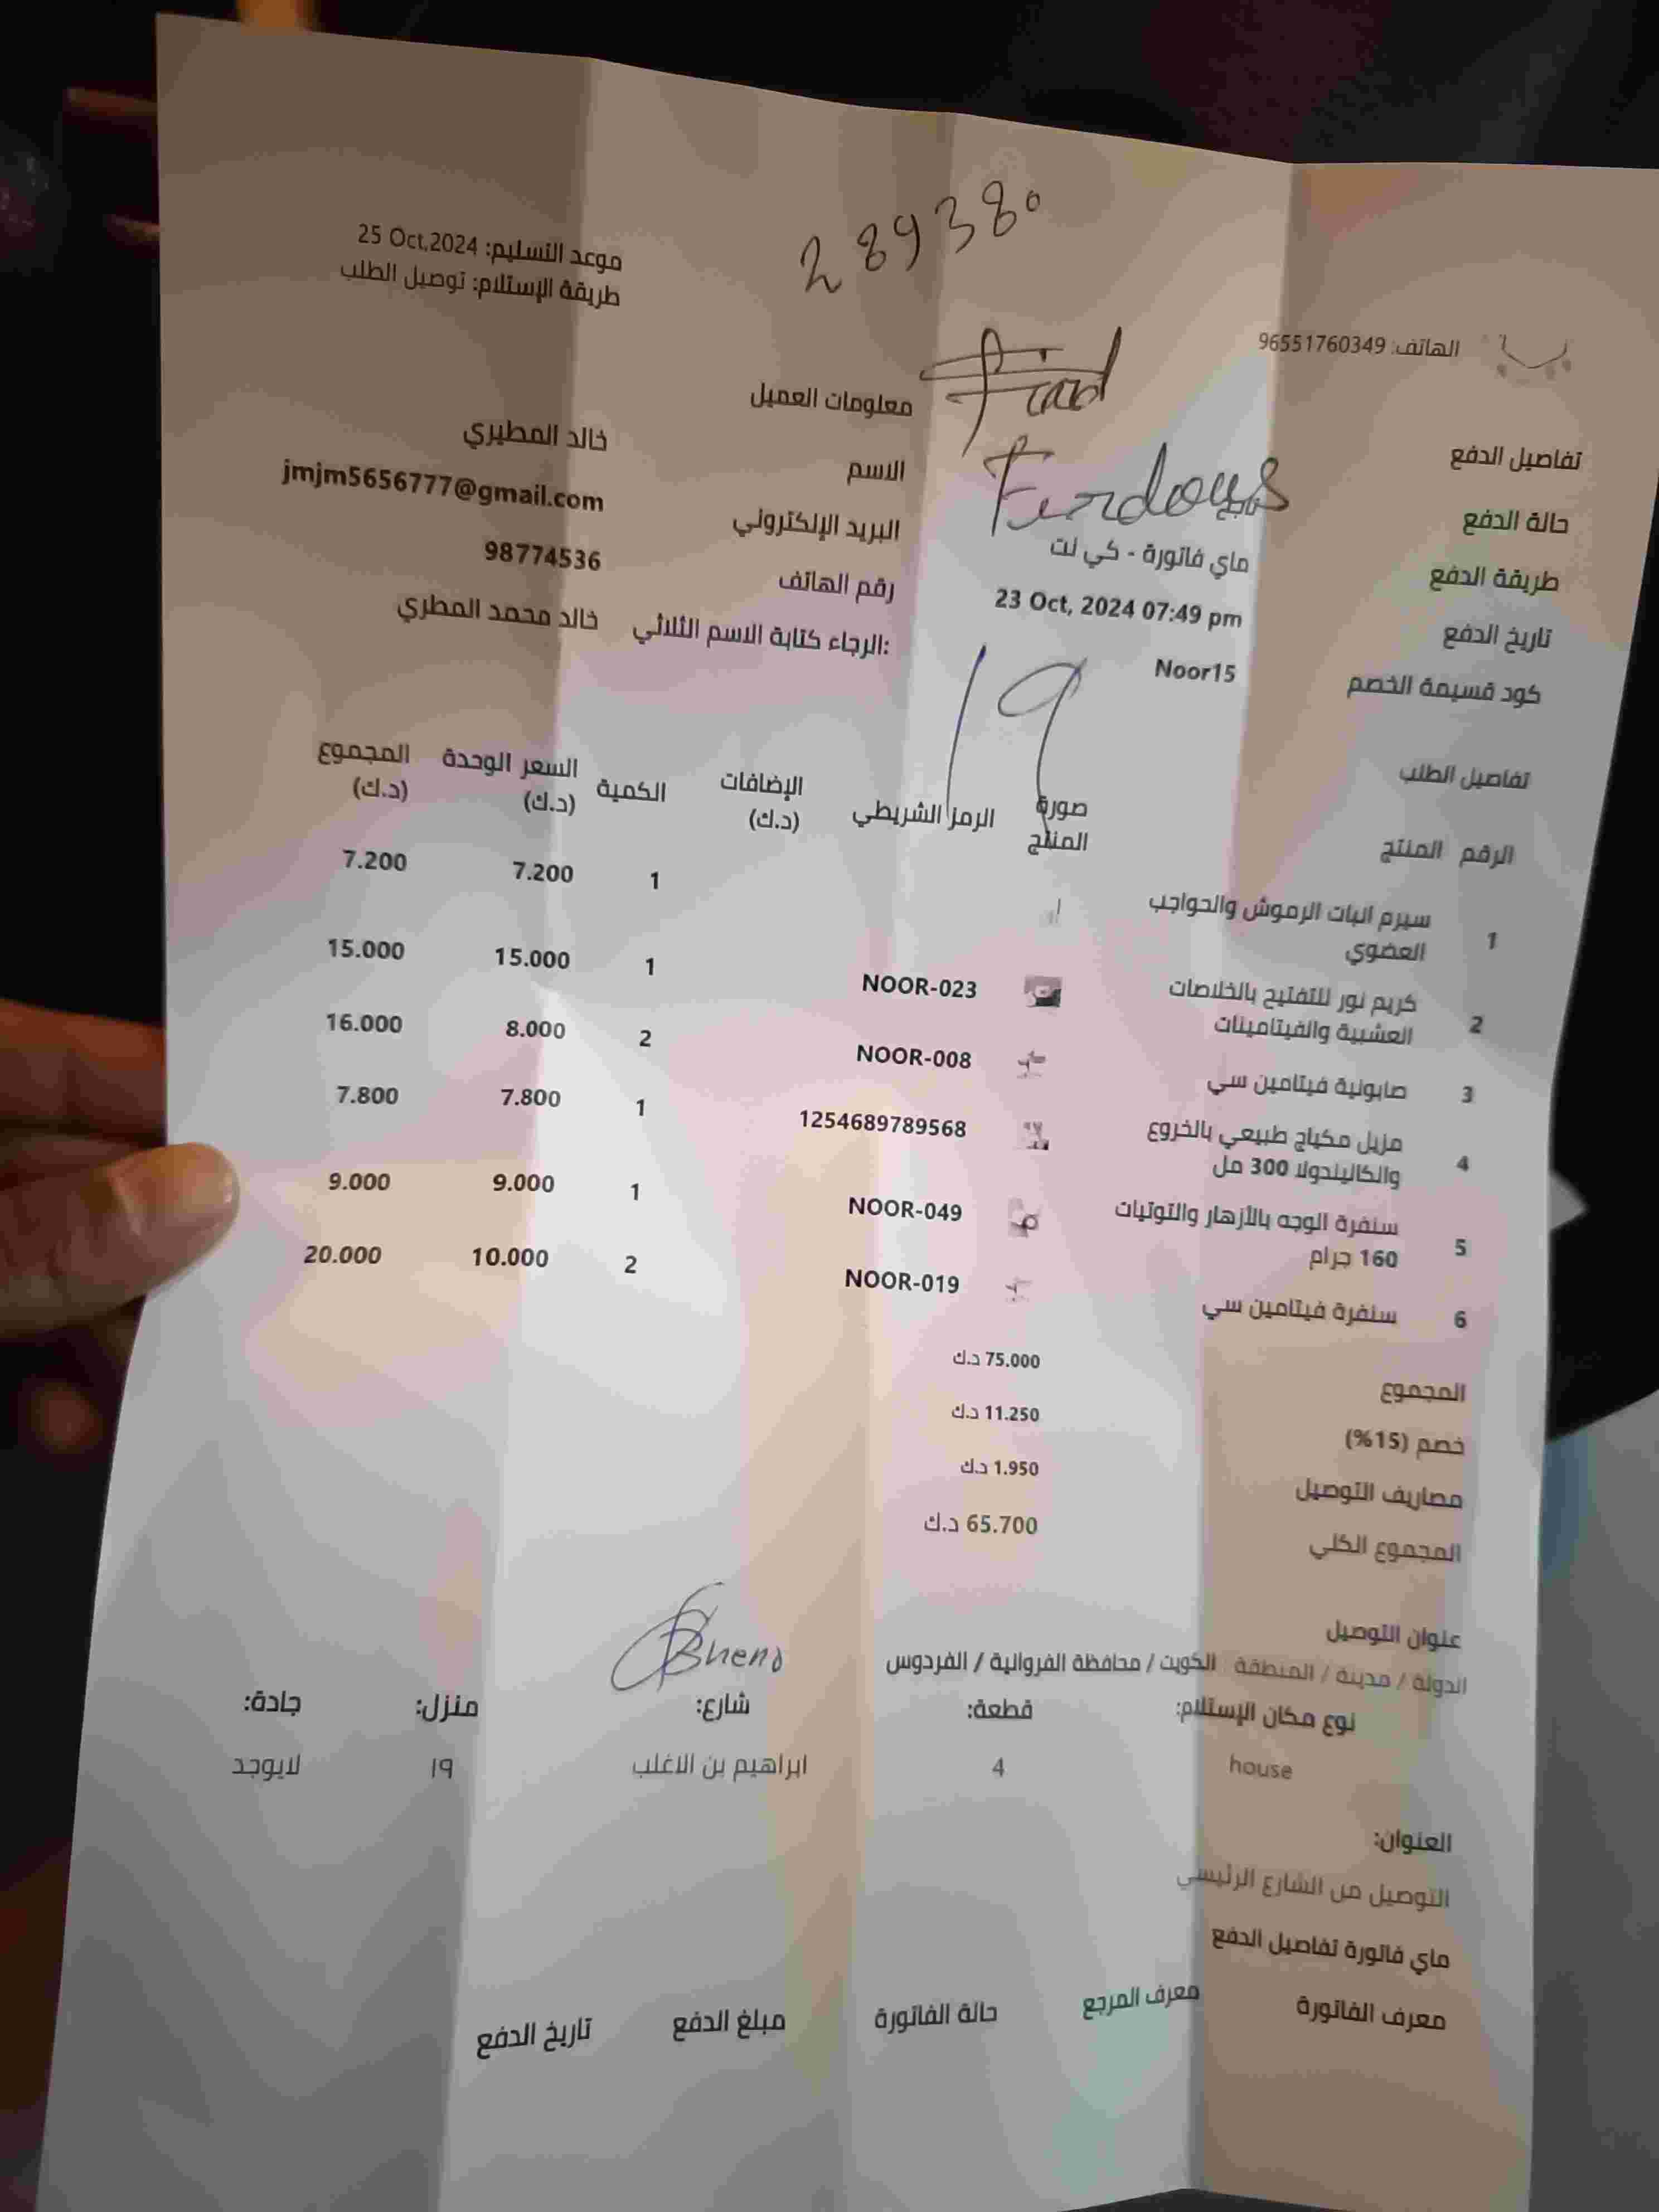 289380
موعد التسليم: 25 Oct,2024
طريقة الإستلام: توصيل الطلب
الهاتف: 96551760349
Firdous
تفاصيل الدفع
حالة الدفع
طريقة الدفع ماي فاتورة - كي نت
تاريخ الدفع 23 Oct, 2024 07:49 pm
كود قسيمة الخصم Noor15
معلومات العميل
الاسم خالد المطيري
البريد الإلكتروني jmjm5656777@gmail.com
رقم الهاتف 98774536
الرجاء كتابة الاسم الثلاثي: خالد محمد المطري
19
تفاصيل الطلب
الرقم المنتج صورة المنتج الرمز الشريطي الإضافات (د.ك) الكمية السعر الوحدة (د.ك) المجموع (د.ك)
1 سيرم انبات الرموش والحواجب العضوي 1 7.200 7.200
2 كريم نور للتفتيح بالخلاصات العشبية والفيتامينات NOOR-023 1 15.000 15.000
3 صابونية فيتامين سي NOOR-008 2 8.000 16.000
4 مزيل مكياج طبيعي بالخروع والكاليندولا 300 مل 1254689789568 1 7.800 7.800
5 سنفرة الوجه بالأزهار والتوتيات 160 جرام NOOR-049 1 9.000 9.000
6 سنفرة فيتامين سي NOOR-019 2 10.000 20.000
المجموع 75.000 د.ك
خصم (15%) 11.250 د.ك
مصاريف التوصيل 1.950 د.ك
المجموع الكلي 65.700 د.ك
عنوان التوصيل
الدولة / مدينة / المنطقة الكويت / محافظة الفروانية / الفردوس
نوع مكان الإستلام: قطعة: شارع: منزل: جادة:
house 4 ابراهيم بن الاغلب ١٩ لايوجد
العنوان:
التوصيل من الشارع الرئيسي
ماي فاتورة تفاصيل الدفع
معرف الفاتورة معرف المرجع حالة الفاتورة مبلغ الدفع تاريخ الدفع